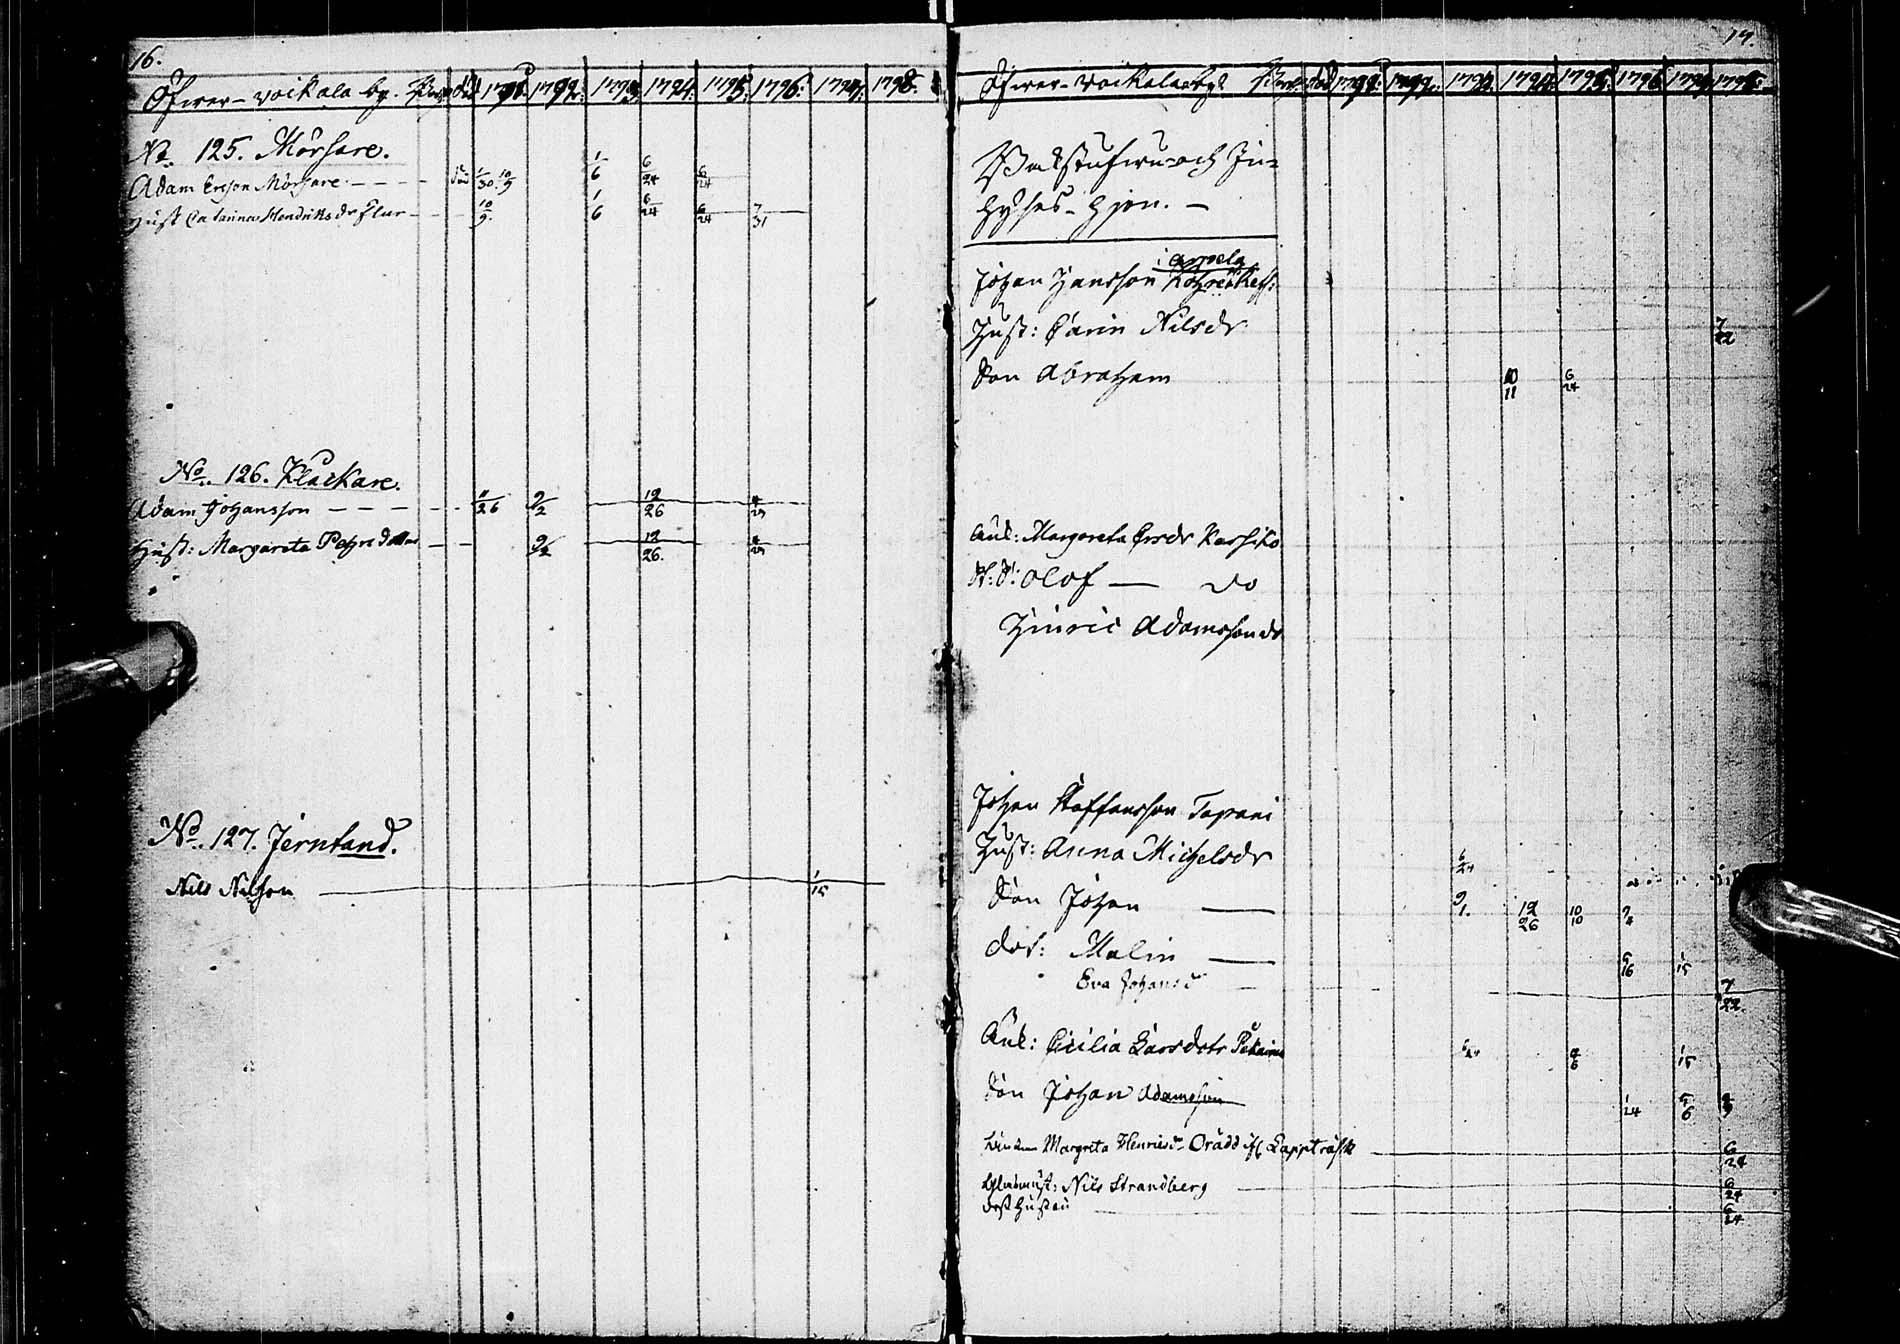 16.
Öfwer-Woikala by. död 1791. 1792. 1793. 1794. 1795. 1796. 1797. 1798.
No. 125. Mörsare.
1 6
Adam Ersson Mörsare - - - - död 1/30. 10/9 6 24 6/24
Hust Catarina Hendriks dr Flur 10/9. 1/6 6/24 6/24 7/31
No. 126. Klackare.
Adam Johansson - - - - 11/26 9/2 12/26 4/29
Hust: Margareta Pehrs dotter - - 9/2 12/26. 4/29
No. 127. Jerntand.
Nils Nilsson 1/15
17.
Öfwer-Woikala by död 1791. 1792. 1793. 1794. 1795. 1796 1797 1798.
Bakstufwu-och In-
hyses-hjon. -
Johan Hansson
Hust: Carin Nilsdr 7/22
Son Abraham 10/11 6/24
Änk: Margareta Ersdr
Olof — do
Hinric Adamsson do
Johan Staffansson Tapani
Hust: Anna Michelsdr 6/24
Son Johan — 9/1. 12/26 10/10
dot: Malin — 5/16 1/15
Eva Johansd 7/22.
Änk: Cicilia Larsdotr 6/24 4/6 1/15
Son Johan Adamsson 1/24 5/6
Margreta Henricsdr Orädd ifr Lappträsk 6/24
Nils Strandberg 6/24
dess Hustru 6/24